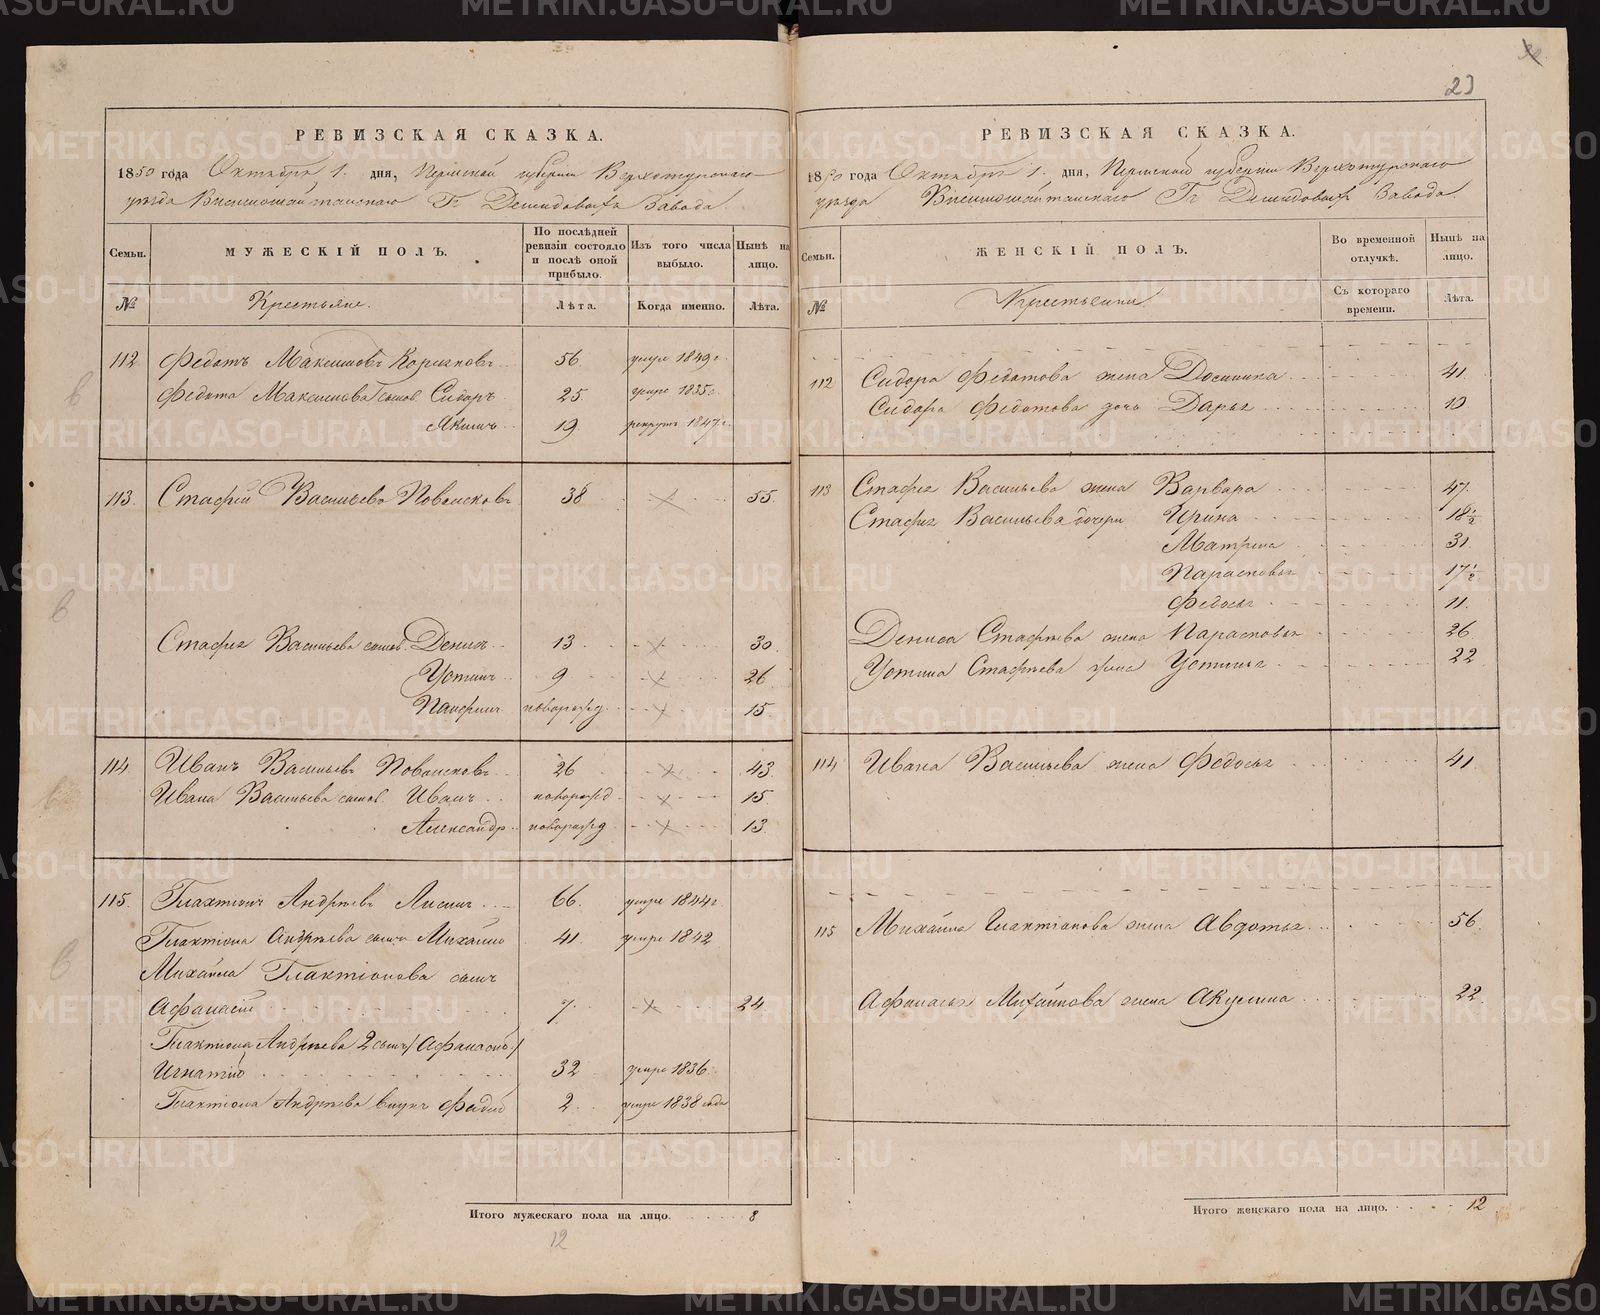 23
РЕВИЗСКАЯ СКАЗКА.
1850 года Октября 1. дня, Пермской губернии Верхотурскаго
уезда Висимошайтанскаго Гг Демидовыхъ Завода.
Семьи.
МУЖЕСКІЙ ПОЛЪ.
По послѣдней ревизіи состояло и послѣ оной прибыло.
Изъ того числа выбыло.
Нынѣ на лицо.
№
Крестьяне.
Лѣта.
Когда именно.
Лѣта.
112 Федотъ Максимовъ 56 умре 1849 г
Федота Максимова сынов. Сидоръ 25 умре 1835 г.
Якимъ 19. рекрутъ 1847 г.
113. Стафей Васильевъ 38 55.
Стафея Васильева сынов. Денисъ 13 30
Устинъ 9 26
Панфилъ новорожд 15
114 Иванъ Васильевъ 26 43
Ивана Васильева сынов. Иванъ новорожд 15
Александръ новорожд 13
115. Галактіонъ Андреевъ 66. умре 1844 г
Галактіона Андреева сынъ Михайло 41. умре 1842
Михайла Галактіонова сынъ
Афанасій 7 24
Галактіона Андреева 2 сынъ /Афанасіевъ/
Игнатій 32 умре 1836.
Галактіона Андреева внукъ Фадей 2 умре 1838 года
Итого мужескаго пола на лицо. 8
12
РЕВИЗСКАЯ СКАЗКА.
1850 года Октября 1. дня, Пермской губерніи Верхотурскаго
уезда Висимошайтанскаго Гг Демидовыхъ Завода.
Семьи.
ЖЕНСКІЙ ПОЛЪ.
Во временной отлучкѣ.
Нынѣ на лицо.
№
Крестьянки
Съ котораго времени.
Лѣта.
112 Сидора Федотова жена Домника 41.
Сидора Федотова дочь Дарья 10
113 Стафея Васильева жена Варвара 47.
Стафея Васильева дочери Ирина 18½
Матрена 31
Парасковья 17½
Федосья 11.
Дениса Стафеева жена Парасковья 26
Устина Стафеева жена Устинья 22
114 Ивана Васильева жена Федосья 41
115 Михайла Галактіонова жена Авдотья 56
Афанасья Михайлова жена Акулина 22
Итого женскаго пола на лицо. 12
METRIKI.GASO-URAL.RU